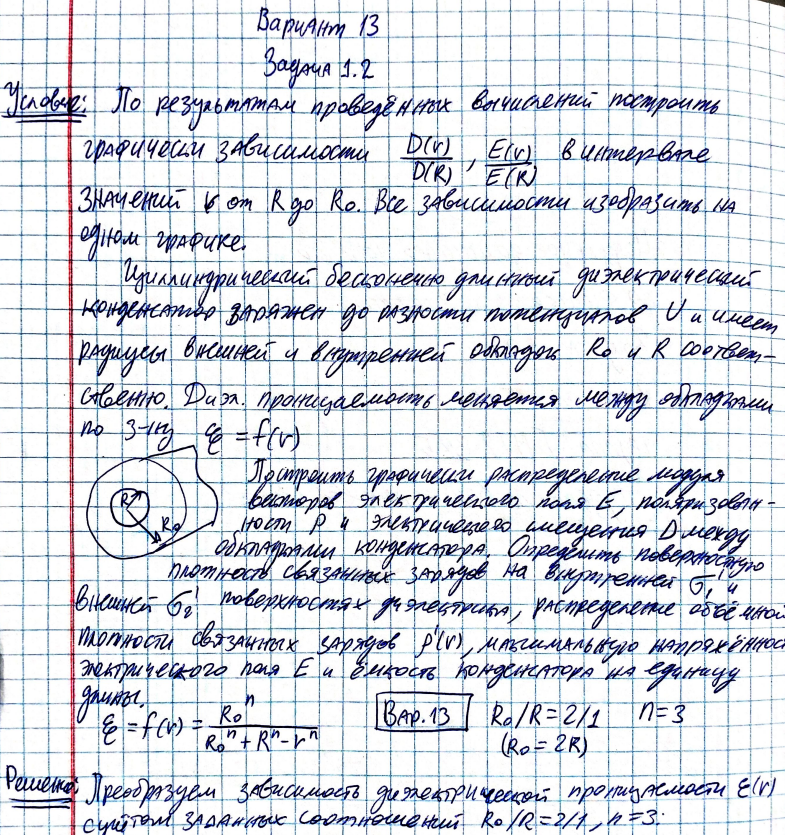 Вариант 13
Задача 1.2
Условие: По результатам проведённых вычислений построить
графически зависимости D(r)/D(R), E(r)/E(R) в интервале
значений r от R до R₀. Все зависимости изобразить на
одном графике.
Цилиндрический бесконечно длинный диэлектрический
конденсатор заряжен до разности потенциалов U и имеет
радиусы внешней и внутренней обкладок R₀ и R соответ-
ственно. Диэл. проницаемость меняется между обкладками
по з-ну ε = f(r)
Построить графически распределение модуля
векторов электрического поля E, поляризован-
R
ности P и электрического смещения D между
R₀
обкладками конденсатора. Определить поверхностную
плотность связанных зарядов на внутренней σ₁' и
внешней σ₂' поверхностях диэлектрика, распределение объёмной
плотности связанных зарядов ρ'(r), максимальную напряжённость
электрического поля E и ёмкость конденсатора на единицу
длины.
ε = f(r) = R₀ⁿ/(R₀ⁿ + Rⁿ - rⁿ) Вар. 13 R₀/R = 2/1 n = 3
(R₀ = 2R)
Решение: Преобразуем зависимость диэлектрической проницаемости ε(r)
с учётом заданных соотношений R₀/R = 2/1, n = 3: